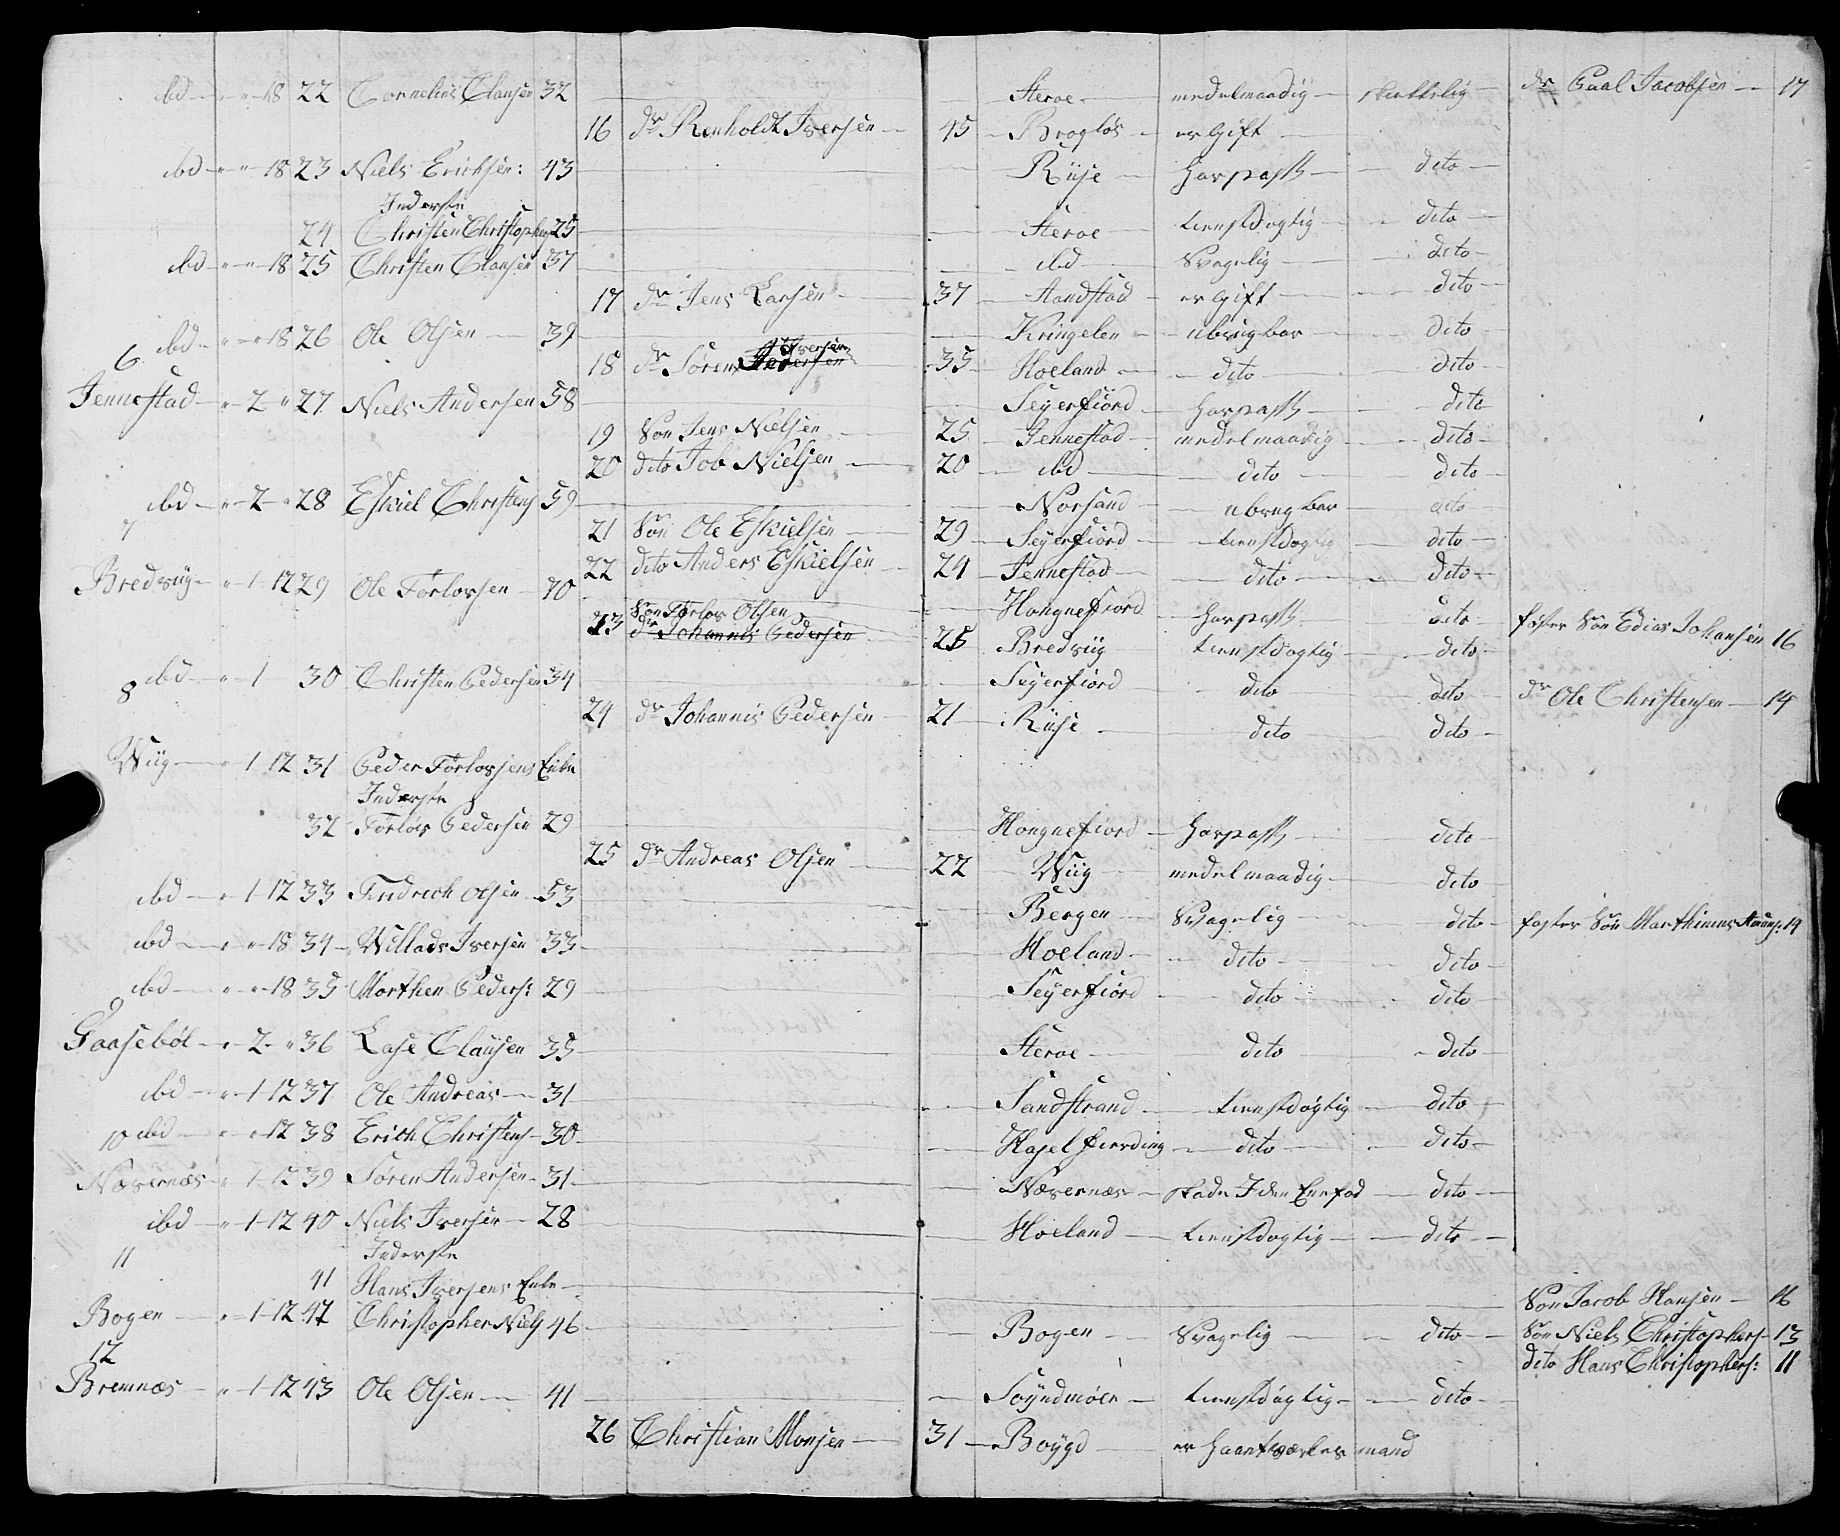 ibd - " - " - 18 22 Cornelius Clausen 32 - Steroe - medelmaadig - skikkelig - dr Paal Jacobsen - 17
16 dr Renholdt Iversen - 45 - Brogløs - er Gift -
ibd - " - " - 18 23 Niels Erichsen: 43 - Riise - har pass - dito -
Inderste
24 Christen Christophers 25 - Steroe - tienstdygtig - dito -
ibd - " - " - 18 25 Christen Clausen 37 - ibd - Svagelig - dito -
17 dr Jens Larsen - 37 - Sandstad - er Gift - dito -
ibd - " - " 18 26 Ole Olsen - 39 - Kringelen - ubrugbar - dito -
6
18 dr Søren Iversen 35 - Hoeland - dito - dito -
Jennestad - " - 2 - " 27 Niels Andersen 58 - Seyerfiord - har pass - dito
19 Søn Jens Nielsen - 25 - Jennestad - medelmaadig - dito -
20 dito Job Nielsen - 20 - ibd - dito - dito -
ibd - " - 2 - " 28 Eskiel Christens 59 - Norsand - ubrugbar - dito -
7
21 Søn Ole Eskielsen - 29 - Seyerfiord - tienstdygtig - dito -
22 dito Anders Eskielsen - 24 - Jennestad - dito - dito -
Bredviig - " - 1 - 12 29 Ole Torlovsen - 70 - Hongnefiord - har pass - dito - foster Søn Edias Johansen 16
Søn Torlov Olsen
23 dr Johannis Pedersen - 25 - Bredviig - tienstdygtig - dito -
ibd - " - 1 30 Christen Pedersen 34 - Seyerfiord - dito - dito - dr Ole Christensen - 14
8
24 dr Johannis Pedersen - 21 - Riise - dito - dito -
Wiig - " - 1 - 12 31 Peder Torlovsens Enke
Inderste
32 Torlov Pedersen 29 - Hongnefiord - har pass - dito -
25 dr Andreas Olsen - 22 - Wiig - medelmaadig - dito -
ibd - " - 1 - 12 33 Fridrech Olsen - 53 - Bergen - Svagelig - dito - foster Søn Marthinus 14
ibd - " - " - 18 34 - Willads Iversen 33 - Hoeland - dito - dito -
ibd - " - " - 18 35 - Morthen Peders: 29 - Seyerfiord - dito - dito -
9
Gaasebøl - " - 2 - " 36 Lase Clausen 35 - Steroe - dito - dito -
ibd - " - 1 - 12 37 Ole Andreas - 31 - Sandstrand - tienstdygtig - dito -
10 ibd - " - " - 12 38 Erich Christens - 30 - Hasel fierding - dito - dito -
Næsernæs - " - 1 - 12 39 Søren Andersen - 31 - Næsernæs - skade I den Ene fod - dito -
ibd - " - 1 - 12 40 Niels Iversen - 28 - Hoeland - tienstdygtig - dito -
11 Inderste
41 Hans Iversens Enke - Søn Jacob Hansen - 16
Bogen - " - 1 - 12 42 Christopher Niels 46 - Bogen - Svagelig - dito - Søn Niels Christophers - 13
12 dito Hans Christophers: 11
Bremnæs - " - 1 - 12 43 Ole Olsen - 41 - Søyndmöer - tienstdygtig - dito -
26 Christian Monsen - 31 - Boygd - er haantværkes mand